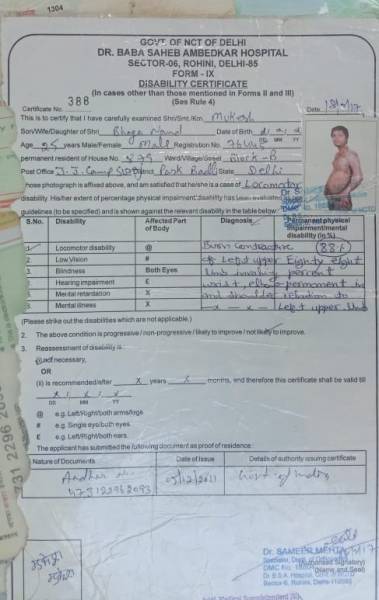 1304
GOVT OF NCT OF DELHI
DR. BABA SAHEB AMBEDKAR HOSPITAL
SECTOR-06, ROHINI, DELHI-85
FORM - IX
DISABILITY CERTIFICATE
(In cases other than those mentioned in Forms II and III)
(See Rule 4)
Certificate No. 388 Date
This is to certify that I have carefully examined Shri/Smt./Km. Mukesh
Son/Wife/Daughter of Shri Date of Birth
DD MM YY
Age 25 years Male/Female Male Registration No.
permanent resident of House No. 879 Ward/Village/Street Block-B
Post Office J.J. Camp District State Delhi
whose photograph is affixed above, and am satisfied that he/she is a case of Locomotor
disability. His/her extent of percentage physical impairment/disability has been evaluated
guidelines (to be specified) and is shown against the relevant disability in the table below:
S.No. Disability Affected Part of Body Diagnosis Permanent physical impairment/mental disability (in %)
1. Locomotor disability @ Burn Contracture (88%)
2. Low Vision # Left upper Eighty eight
3. Blindness Both Eyes Limb involving percent
4. Hearing impairment £ wrist, elbow permanent
5. Mental retardation X and shoulder relation to
6. Mental illness X x - x - Left upper limb
(Please strike out the disabilities which are not applicable.)
2. The above condition is progressive / non-progressive / likely to improve / not likely to improve.
3. Reassessment of disability is :
(i) not necessary,
OR
(ii) is recommended/after X years X months, and therefore this certificate shall be valid till
X / X / X
DD MM YY
@ e.g. Left/Right/both arms/legs
# e.g. Single eye/both eyes
£ e.g. Left/Right/both ears.
The applicant has submitted the following document as proof of residence :
Nature of Documents Date of Issue Details of authority issuing certificate
05/12/2011 Govt of India
Dr. SAMEER MEHTA
(Authorised Signatory)
(Name and Seal)